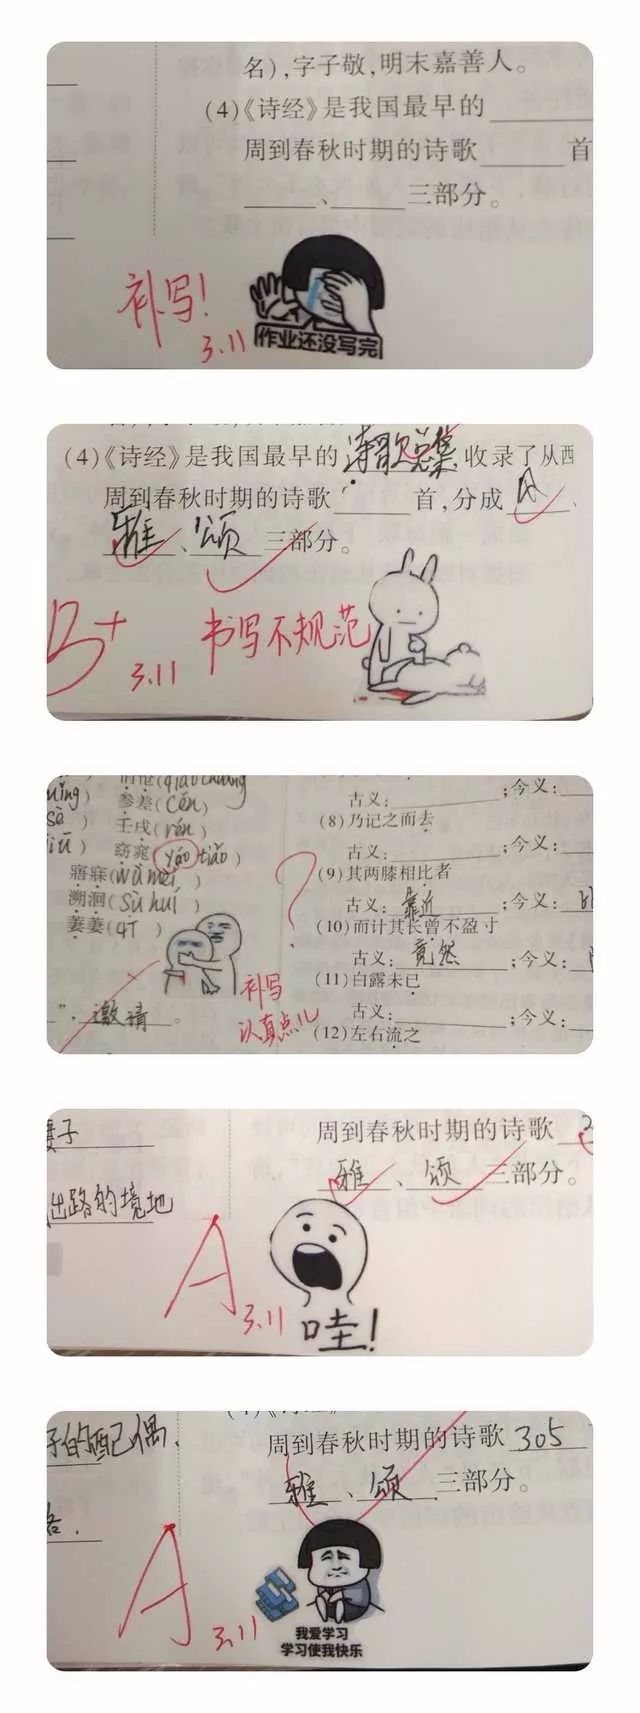 名),字子敬,明末嘉善人。
(4)《诗经》是我国最早的
周到春秋时期的诗歌______首
______、______三部分。
补写!
3.11
作业还没写完
(4)《诗经》是我国最早的诗歌总集,收录了从西
周到春秋时期的诗歌______首,分成风、
雅、颂三部分。
B+
3.11
书写不规范
参差(cēn)
壬戌(rén)
窈窕(yáo tiǎo)
寤寐(wù mèi)
溯洄(sù huí)
萋萋(qī)
"。邀请。
?
补写
认真点儿
古义:______;今义:
(8)乃记之而去
古义:______;今义:
(9)其两膝相比者
古义:靠近;今义:
(10)而计其长曾不盈寸
古义:竟然;今义:
(11)白露未已
古义:______;今义:
(12)左右流之
妻子
出路的境地
周到春秋时期的诗歌
雅、颂三部分。
A
3.11
哇!
子的配偶,
周到春秋时期的诗歌305
雅、颂三部分。
A
3.11
我爱学习
学习使我快乐